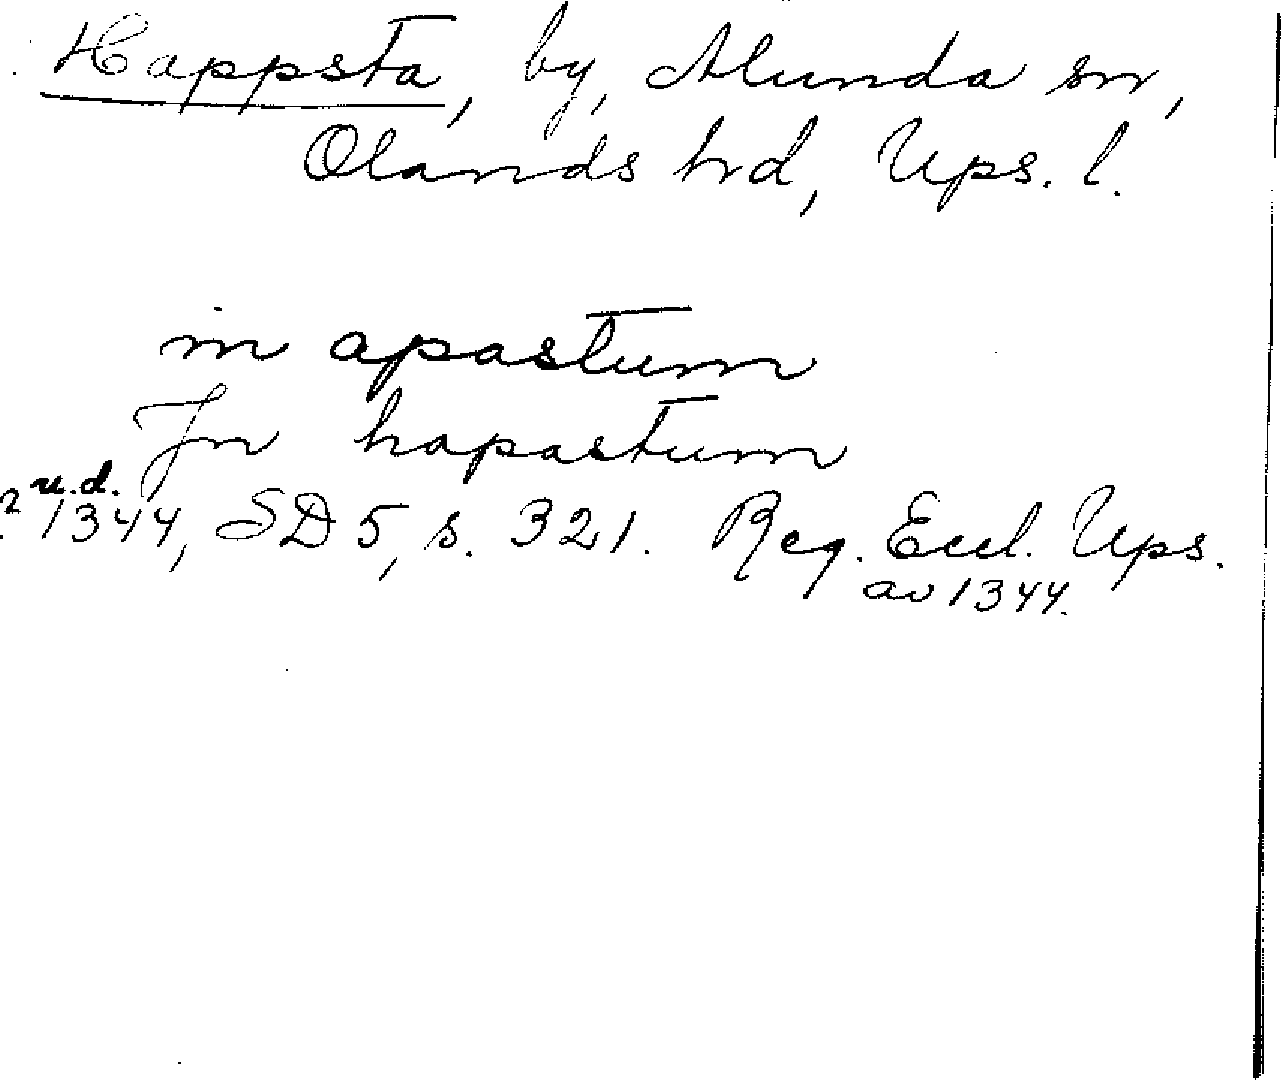 Happsta, by, Alunda sn,
Olands hrd, Ups. l.
in apastum
Jn hapastum
u.d.
? 1344, SD 5, s. 321. Reg. Eccl. Ups.
av 1344.